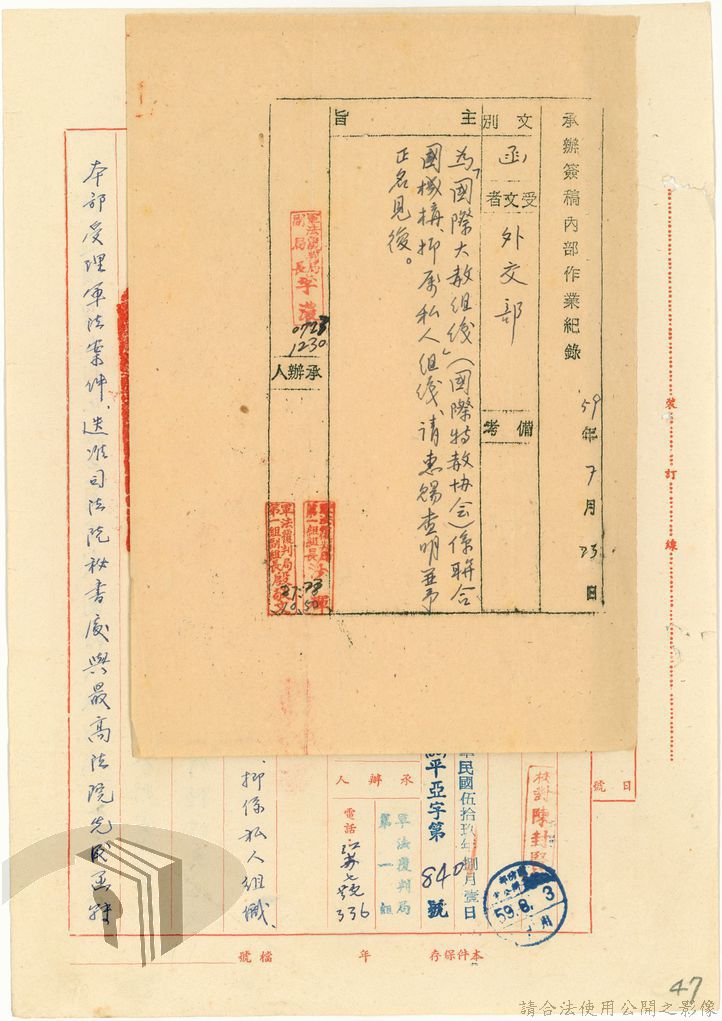 承辦簽稿內部作業紀錄
59年7月23日
文別
函
受文者
外交部
備考
主旨
為「國際大赦組織」（國際特赦協会）係聯合
國機構、抑屬私人組織、請惠賜查明並予
正名見復。
軍法覆判局
副局長
李
0723
1230
承辦人
軍法覆判局
第一組組長
軍法覆判局
第一組副組長
裝訂線
本部受理軍法案件、迭准司法院秘書處與最高法院先後函轉
、抑係私人組織、
日
號
校對陳
民國伍拾玖年捌月壹日
平亞字第840號
承辦人
軍法覆判局
第一組
電話
336
59.8.3
本件保存
年
檔號
47
請合法使用公開之影像